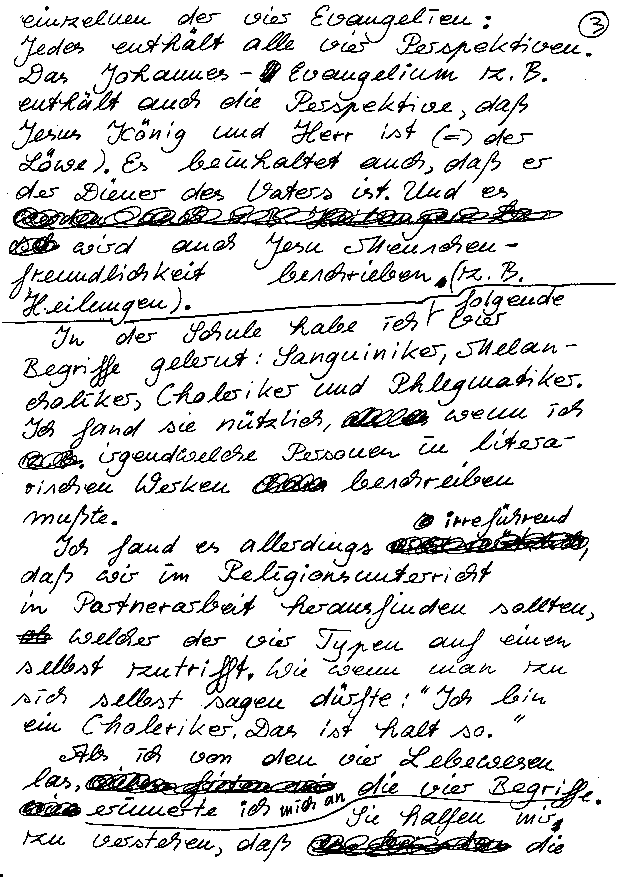 einzelnen der vier Evangelien: ③
Jedes enthält alle vier Perspektiven.
Das Johannes-Evangelium z.B.
enthält auch die Perspektive, daß
Jesus König und Herr ist (=) der
Löwe). Es beinhaltet auch, daß er
der Diener des Vaters ist. Und es
wird auch Jesu Menschen-
freundlichkeit beschrieben, (z.B.
Heilungen).
folgende
In der Schule habe ich vier
Begriffe gelernt: Sanguiniker, Melan-
choliker, Choleriker und Phlegmatiker.
Ich fand sie nützlich, wenn ich
irgendwelche Personen in litera-
rischen Werken beschreiben
mußte.
irreführend
Ich fand es allerdings ,
daß wir im Religionsunterricht
in Partnerarbeit herausfinden sollten,
welcher der vier Typen auf einen
selbst zutrifft. Wie wenn man zu
sich selbst sagen dürfte: "Ich bin
ein Choleriker. Das ist halt so."
Als ich von den vier Lebewesen
las, die vier Begriffe.
erinnerte ich mich an Sie halfen mir,
zu verstehen, daß die